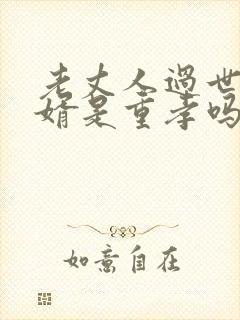 老丈人过世
婿是重孝吗
如意自在